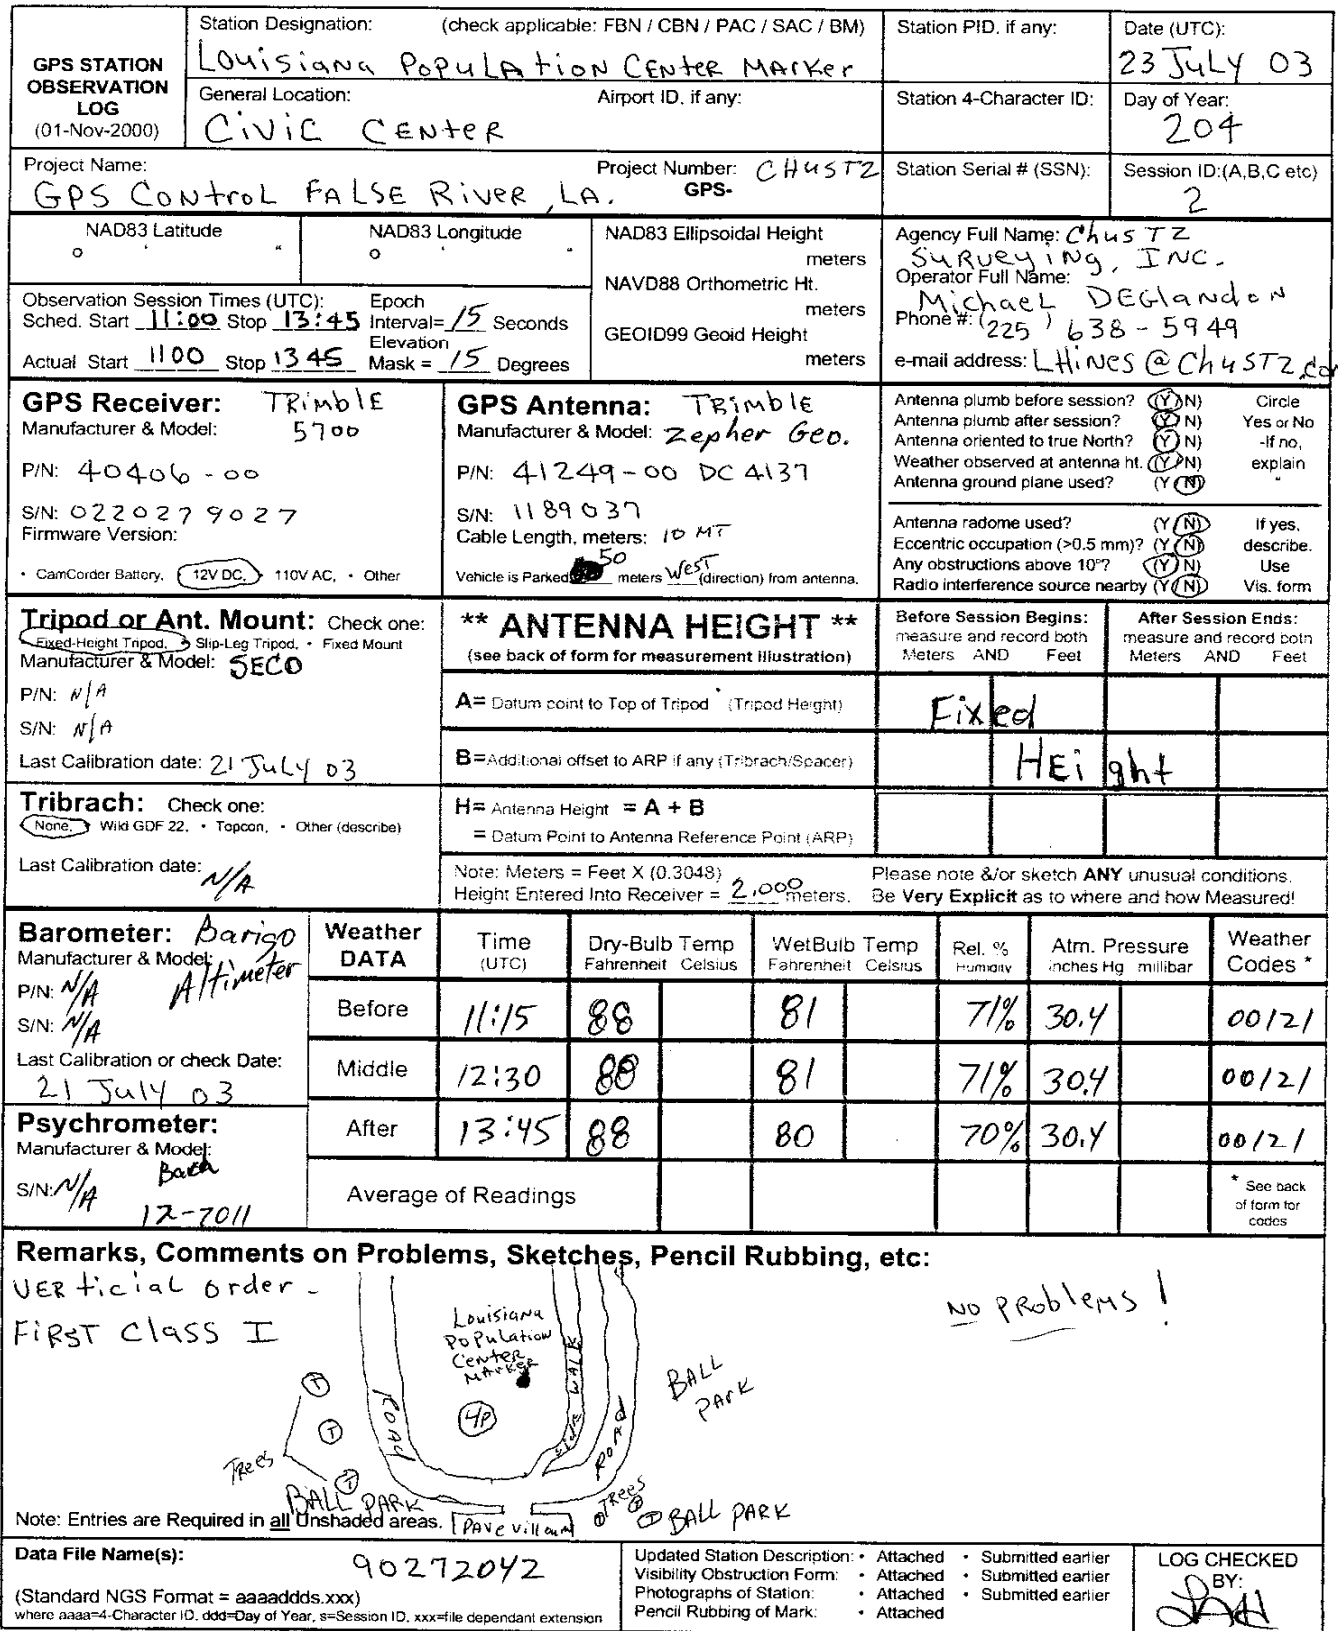 GPS STATION
OBSERVATION
LOG
(01-Nov-2000)
Station Designation: (check applicable: FBN / CBN / PAC / SAC / BM)
Louisiana Population Center Marker
Station PID, if any:
Date (UTC):
23 July 03
General Location: Airport ID, if any:
Civic Center
Station 4-Character ID:
Day of Year:
204
Project Name:
GPS Control False River, LA.
Project Number: CHUSTZ
GPS-
Station Serial # (SSN):
Session ID:(A,B,C etc)
2
NAD83 Latitude
° ' "
NAD83 Longitude
° ' "
NAD83 Ellipsoidal Height
meters
NAVD88 Orthometric Ht.
meters
GEOID99 Geoid Height
meters
Agency Full Name: Chustz
Surveying, Inc.
Operator Full Name:
Michael DEGlandon
Phone #: (225) 638-5949
e-mail address: LHines@Chustz.com
Observation Session Times (UTC):
Sched. Start 11:00 Stop 13:45
Actual Start 1100 Stop 1345
Epoch
Interval= 15 Seconds
Elevation
Mask = 15 Degrees
GPS Receiver: Trimble
Manufacturer & Model: 5700
P/N: 40406-00
S/N: 0220279027
Firmware Version:
• CamCorder Battery, 12V DC, • 110V AC, • Other
GPS Antenna: Trimble
Manufacturer & Model: Zepher Geo.
P/N: 41249-00 DC 4137
S/N: 1189037
Cable Length, meters: 10 MT
Vehicle is Parked 50 meters West (direction) from antenna.
Antenna plumb before session? (Y N) Circle
Antenna plumb after session? (Y N) Yes or No
Antenna oriented to true North? (Y N) -If no,
Weather observed at antenna ht. (Y N) explain
Antenna ground plane used? (Y N) "
Antenna radome used? (Y N) If yes,
Eccentric occupation (>0.5 mm)? (Y N) describe.
Any obstructions above 10°? (Y N) Use
Radio interference source nearby (Y N) Vis. form
Tripod or Ant. Mount: Check one:
Fixed-Height Tripod, • Slip-Leg Tripod, • Fixed Mount
Manufacturer & Model: SECO
P/N: N/A
S/N: N/A
Last Calibration date: 21 July 03
** ANTENNA HEIGHT **
(see back of form for measurement illustration)
Before Session Begins:
measure and record both
Meters AND Feet
After Session Ends:
measure and record both
Meters AND Feet
A= Datum point to Top of Tripod (Tripod Height)
Fixed
B=Additional offset to ARP if any (Tribrach/Spacer)
Height
Tribrach: Check one:
None, • Wild GDF 22, • Topcon, • Other (describe)
Last Calibration date: N/A
H= Antenna Height = A + B
= Datum Point to Antenna Reference Point (ARP)
Note: Meters = Feet X (0.3048)
Height Entered Into Receiver = 2.000 meters.
Please note &/or sketch ANY unusual conditions.
Be Very Explicit as to where and how Measured!
Barometer: Barigo
Manufacturer & Model: Altimeter
P/N: N/A
S/N: N/A
Last Calibration or check Date:
21 July 03
Psychrometer:
Manufacturer & Model:
S/N: N/A
12-7011
Weather
DATA
Time
(UTC)
Dry-Bulb Temp
Fahrenheit Celsius
WetBulb Temp
Fahrenheit Celsius
Rel. %
Humidity
Atm. Pressure
inches Hg millibar
Weather
Codes *
Before 11:15 88 81 71% 30.4 00121
Middle 12:30 88 81 71% 30.4 00121
After 13:45 88 80 70% 30.4 00121
Average of Readings
* See back
of form for
codes
Remarks, Comments on Problems, Sketches, Pencil Rubbing, etc:
VERticial order -
First Class I
No Problems!
Louisiana
Population
Center
Marker
4P
ROAD
SIDE WALK
ROAD
BALL
PARK
T
T
T
Trees
BALL PARK
Trees
T
BALL PARK
PAVevillaun
Note: Entries are Required in all Unshaded areas.
Data File Name(s): 90272042
(Standard NGS Format = aaaaddds.xxx)
where aaaa=4-Character ID, ddd=Day of Year, s=Session ID, xxx=file dependant extension
Updated Station Description: • Attached • Submitted earlier
Visibility Obstruction Form: • Attached • Submitted earlier
Photographs of Station: • Attached • Submitted earlier
Pencil Rubbing of Mark: • Attached
LOG CHECKED
BY: